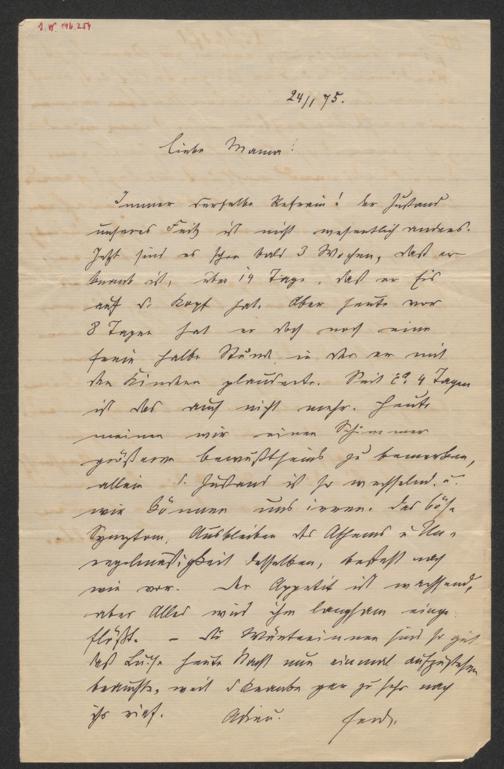 24/1 75.
Liebe Mama!
Immer derselbe Refrain! Der Zustand
unseres Fritz ist nicht wesentlich anders.
Jetzt sind es schon bald 3 Wochen, daß er
krank ist, über 14 Tage, daß er Eis
auf d. Kopf hat. Aber heute vor
8 Tagen hat er doch noch eine
freie halbe Stunde in der er mit
den Kindern plauderte. Seit 4 Tagen
ist das auch nicht mehr. Heute
meinen wir einen Schimmer
größeren Bewußtseins zu bemerken,
allein d. Zustand ist so wechselnd u.
wir können uns irren. Das böse
Symptom, Ausbleiben des Athems u Un-
regelmäßigkeit desselben, besteht noch
wie vor. Der Appetit ist wachsend,
aber Alles wird ihm langsam einge-
flößt. – Die Wärterinnen sind so gut
daß Luise heute Nacht nur einmal aufzustehen
brauchte, weil d Kranke gar zu sehr nach
ihr rief. Adieu. Ferd.